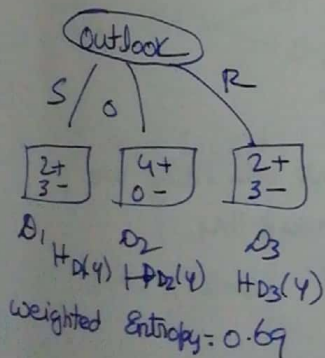 outlook
S O R
2+ 4+ 2+
3- 0- 3-
D1 D2 D3
HD1(y) HD2(y) HD3(y)
weighted Entropy = 0.69